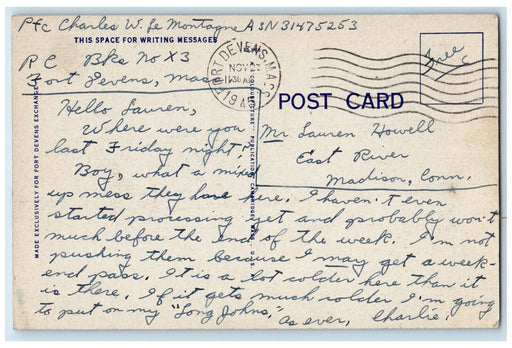 Pfc Charles W. Le Montagne ASN 31475253
THIS SPACE FOR WRITING MESSAGES
R C Bks No X3
Fort Devens, Mass
FORT DEVENS, MASS.
NOV 2
1130 AM
194
Free
POST CARD
Hello Lauren,
Where were you
last Friday night?
Mr Lauren Howell
East River
Madison, Conn.
Boy, what a mixed
up mess they have here. I haven't even
started processing yet and probably won't
much before the end of the week. I'm not
pushing them because I may get a week-
end pass. It is a lot colder here than it
is there. If it gets much colder I'm going
to put on my "Long Johns."
As ever, Charlie.
MADE EXCLUSIVELY FOR FORT DEVENS EXCHANGE
"COLOURPICTURE" PUBLICATION, CAMBRIDGE, MASS.